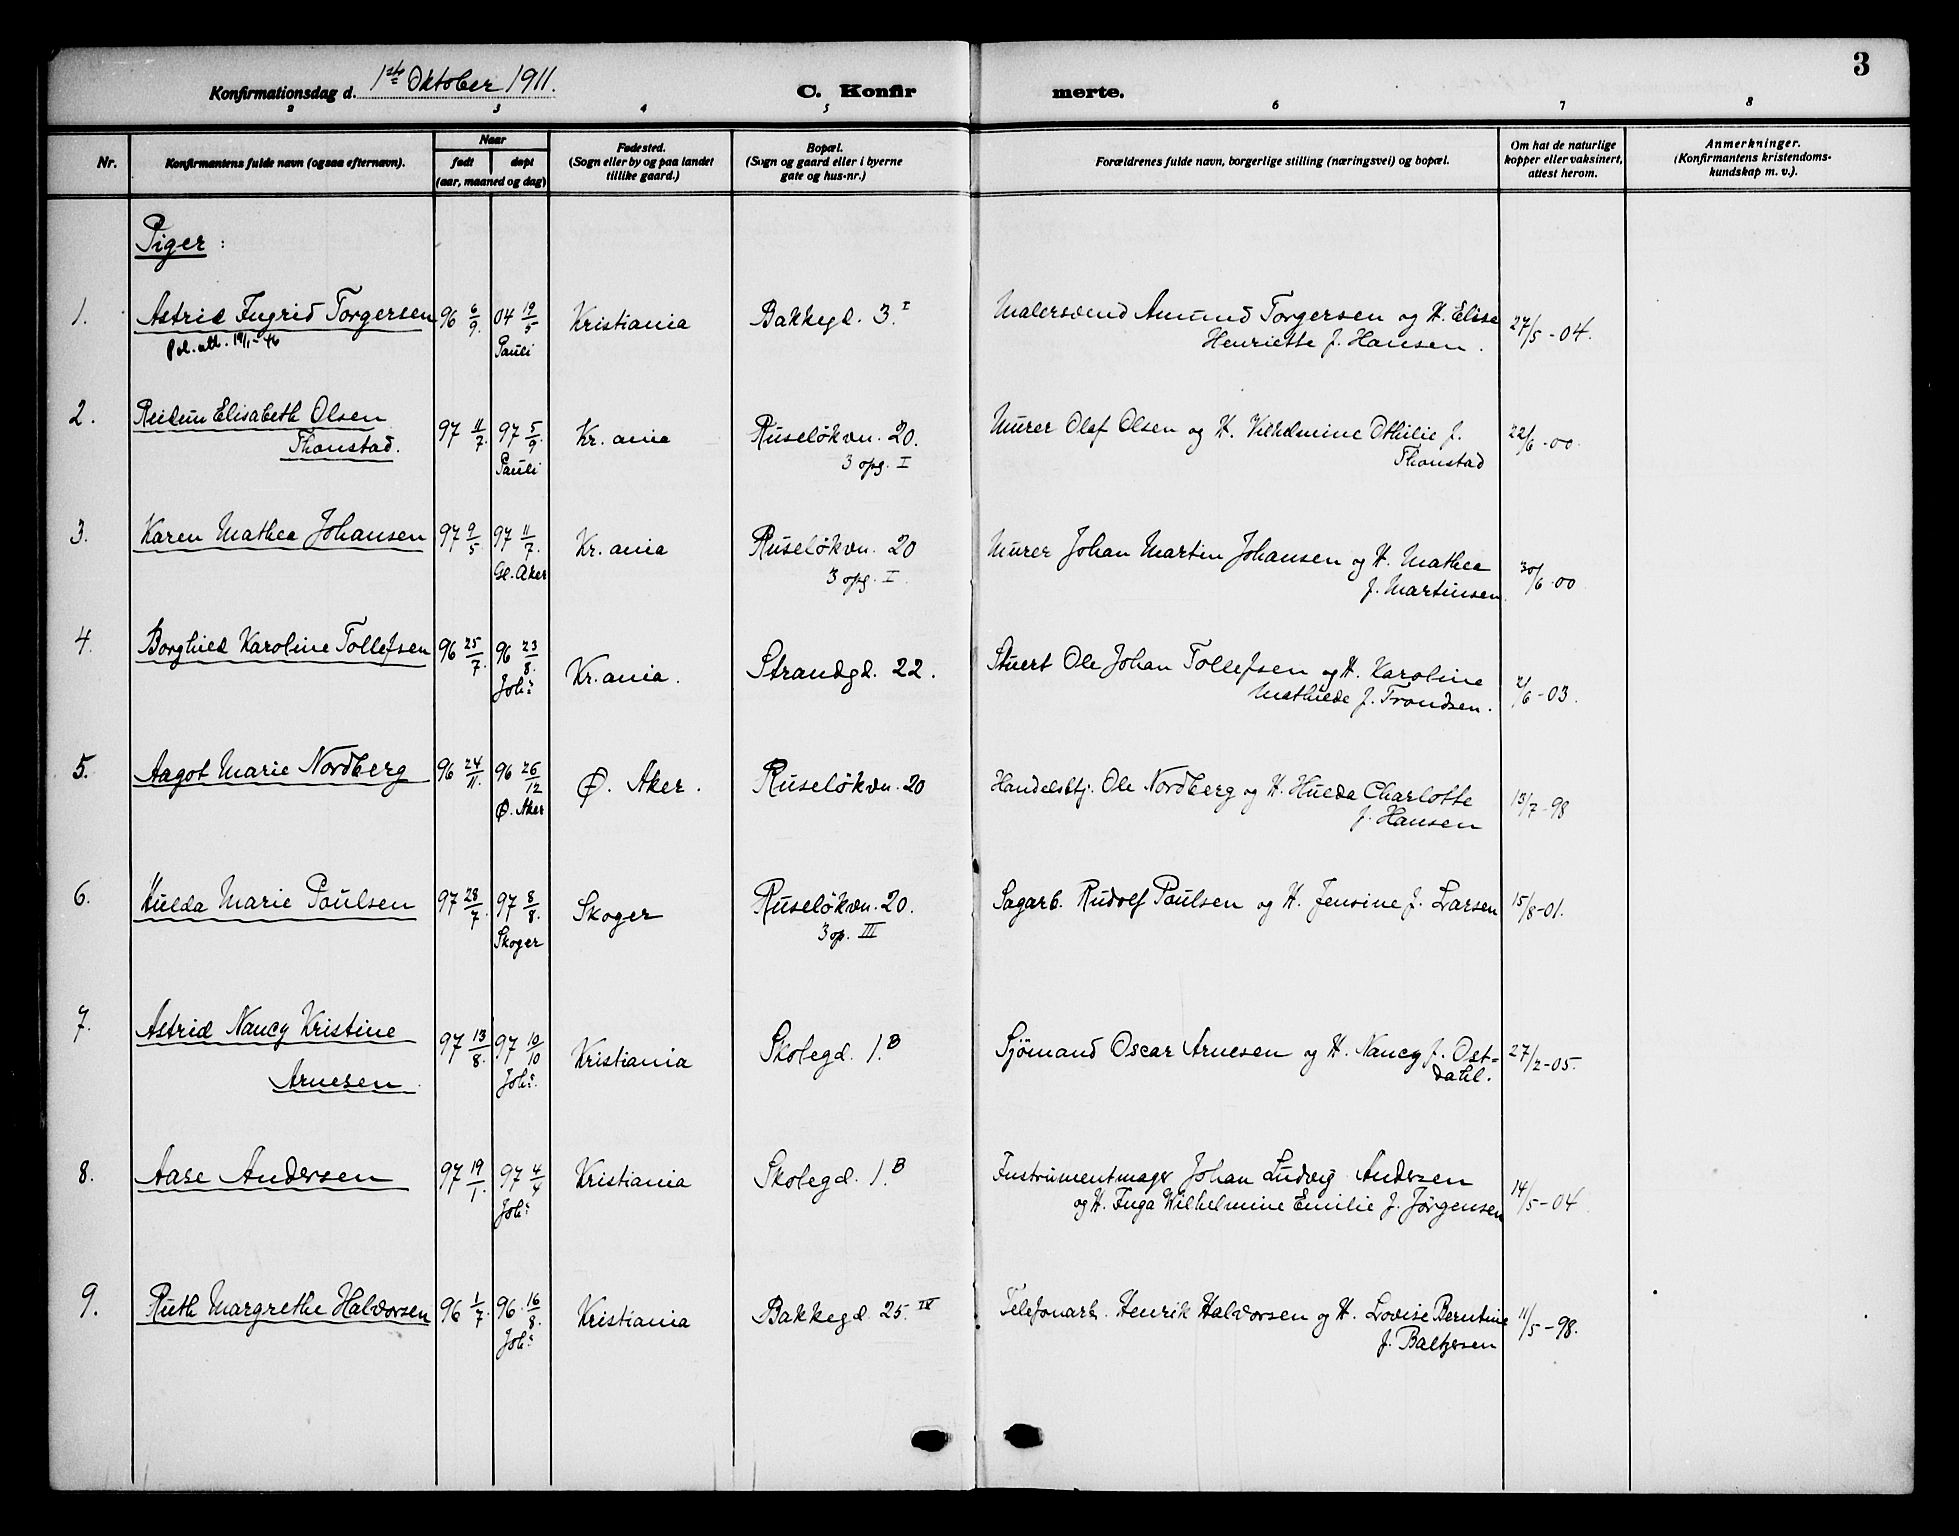 3
Konfirmationsdag d. 1ste Oktober 1911.
C. Konfirmerte.
2 3 4 5 6 7 8
Nr.
Konfirmantens fulde navn (ogsaa efternavn).
Naar
født døpt
(aar, maaned og dag)
Fødested.
(Sogn eller by og paa landet
tillike gaard.)
Bopæl.
(Sogn og gaard eller i byerne
gate og hus-nr.)
Forældrenes fulde navn, borgerlige stilling (næringsvei) og bopæl.
Om hat de naturlige
kopper eller vaksinert,
attest herom.
Anmerkninger.
(Konfirmantens kristendoms-
kundskap m. v.).
Piger:
1. Astrid Ingrid Torgersen 96 6/9. 04 19/5 Kristiania Bakkegd. 3.I Malersvend Amund Torgersen og H. Elise 27/5-04.
Pol. att. 19/1-46 Pauli Henriette f. Hansen.
2. Reidun Elisabeth Olsen 97 11/7. 97 5/9. Kr.ania Ruseløkvn. 20. Murer Olaf Olsen og H. Vilhelmine Othilie f. 22/6-00.
Thonstad. Pauli 3 opg. I Thonstad
3. Karen Mathea Johansen 97 9/5. 97 11/7. Kr.ania Ruseløkvn. 20 Murer Johan Martin Johansen og H. Mathea 30/6-00
Gl. Aker 3 opg. I. f. Martinsen.
4. Borghild Karoline Tollefsen 96 25/7. 96 23/8. Kr.ania. Strandgd. 22. Stuert Ole Johan Tollefsen og H. Karoline 2/6-03.
Joh.s Mathilde f. Trondsen.
5. Aagot Marie Nordberg 96 24/11. 96 26/12 Ø. Aker. Ruseløkvn. 20 Handelsbtj. Ole Nordberg og H. Hulda Charlotte 13/7-98
Ø. Aker f. Hansen
6. Hulda Marie Paulsen 97 28/7. 97 8/8. Skoger Ruseløkvn. 20. Sagarb. Rudolf Paulsen og H. Jensine f. Larsen 15/8-01.
Skoger 3 op. III
7. Astrid Nancy Kristine 97 13/8. 97 10/10 Kristiania Skolegd. 1.B Sjømand Oscar Arnesen og H. Nancy f. Ost- 27/2-05.
Arnesen. Joh.s dahl.
8. Aase Andersen 97 19/1. 97 4/4 Kristiania Skolegd. 1.B Instrumentmager Johan Ludvig Andersen 14/5-04
Joh.s og H. Inga Wilhelmine Emilie f. Jørgensen
9. Ruth Margrethe Halvorsen 96 1/7. 96. 16/8. Kristiania Bakkegd. 25.IV Telefonarb. Henrik Halvorsen og H. Lovise Berntine 11/5-98.
Joh.s f. Baltzersen